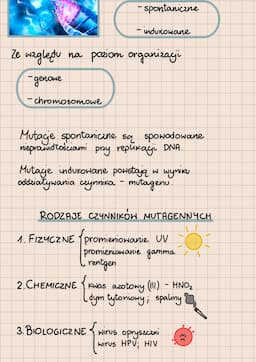 - spontaniczne
- indukowane
Ze względu na poziom organizacji
- genowe
- chromosomowe
Mutacje spontaniczne są spowodowane
nieprawidłościami przy replikacji DNA.
Mutacje indukowane powstają w wyniku
oddziaływania czynnika - mutagenu.
RODZAJE CZYNNIKÓW MUTAGENNYCH
1. FIZYCZNE { promieniowanie UV
promieniowanie gamma
rentgen
2. CHEMICZNE { kwas azotowy (III) - HNO₂
dym tytoniowy; spaliny
3. BIOLOGICZNE { wirus opryszczki
wirus HPV; HIV